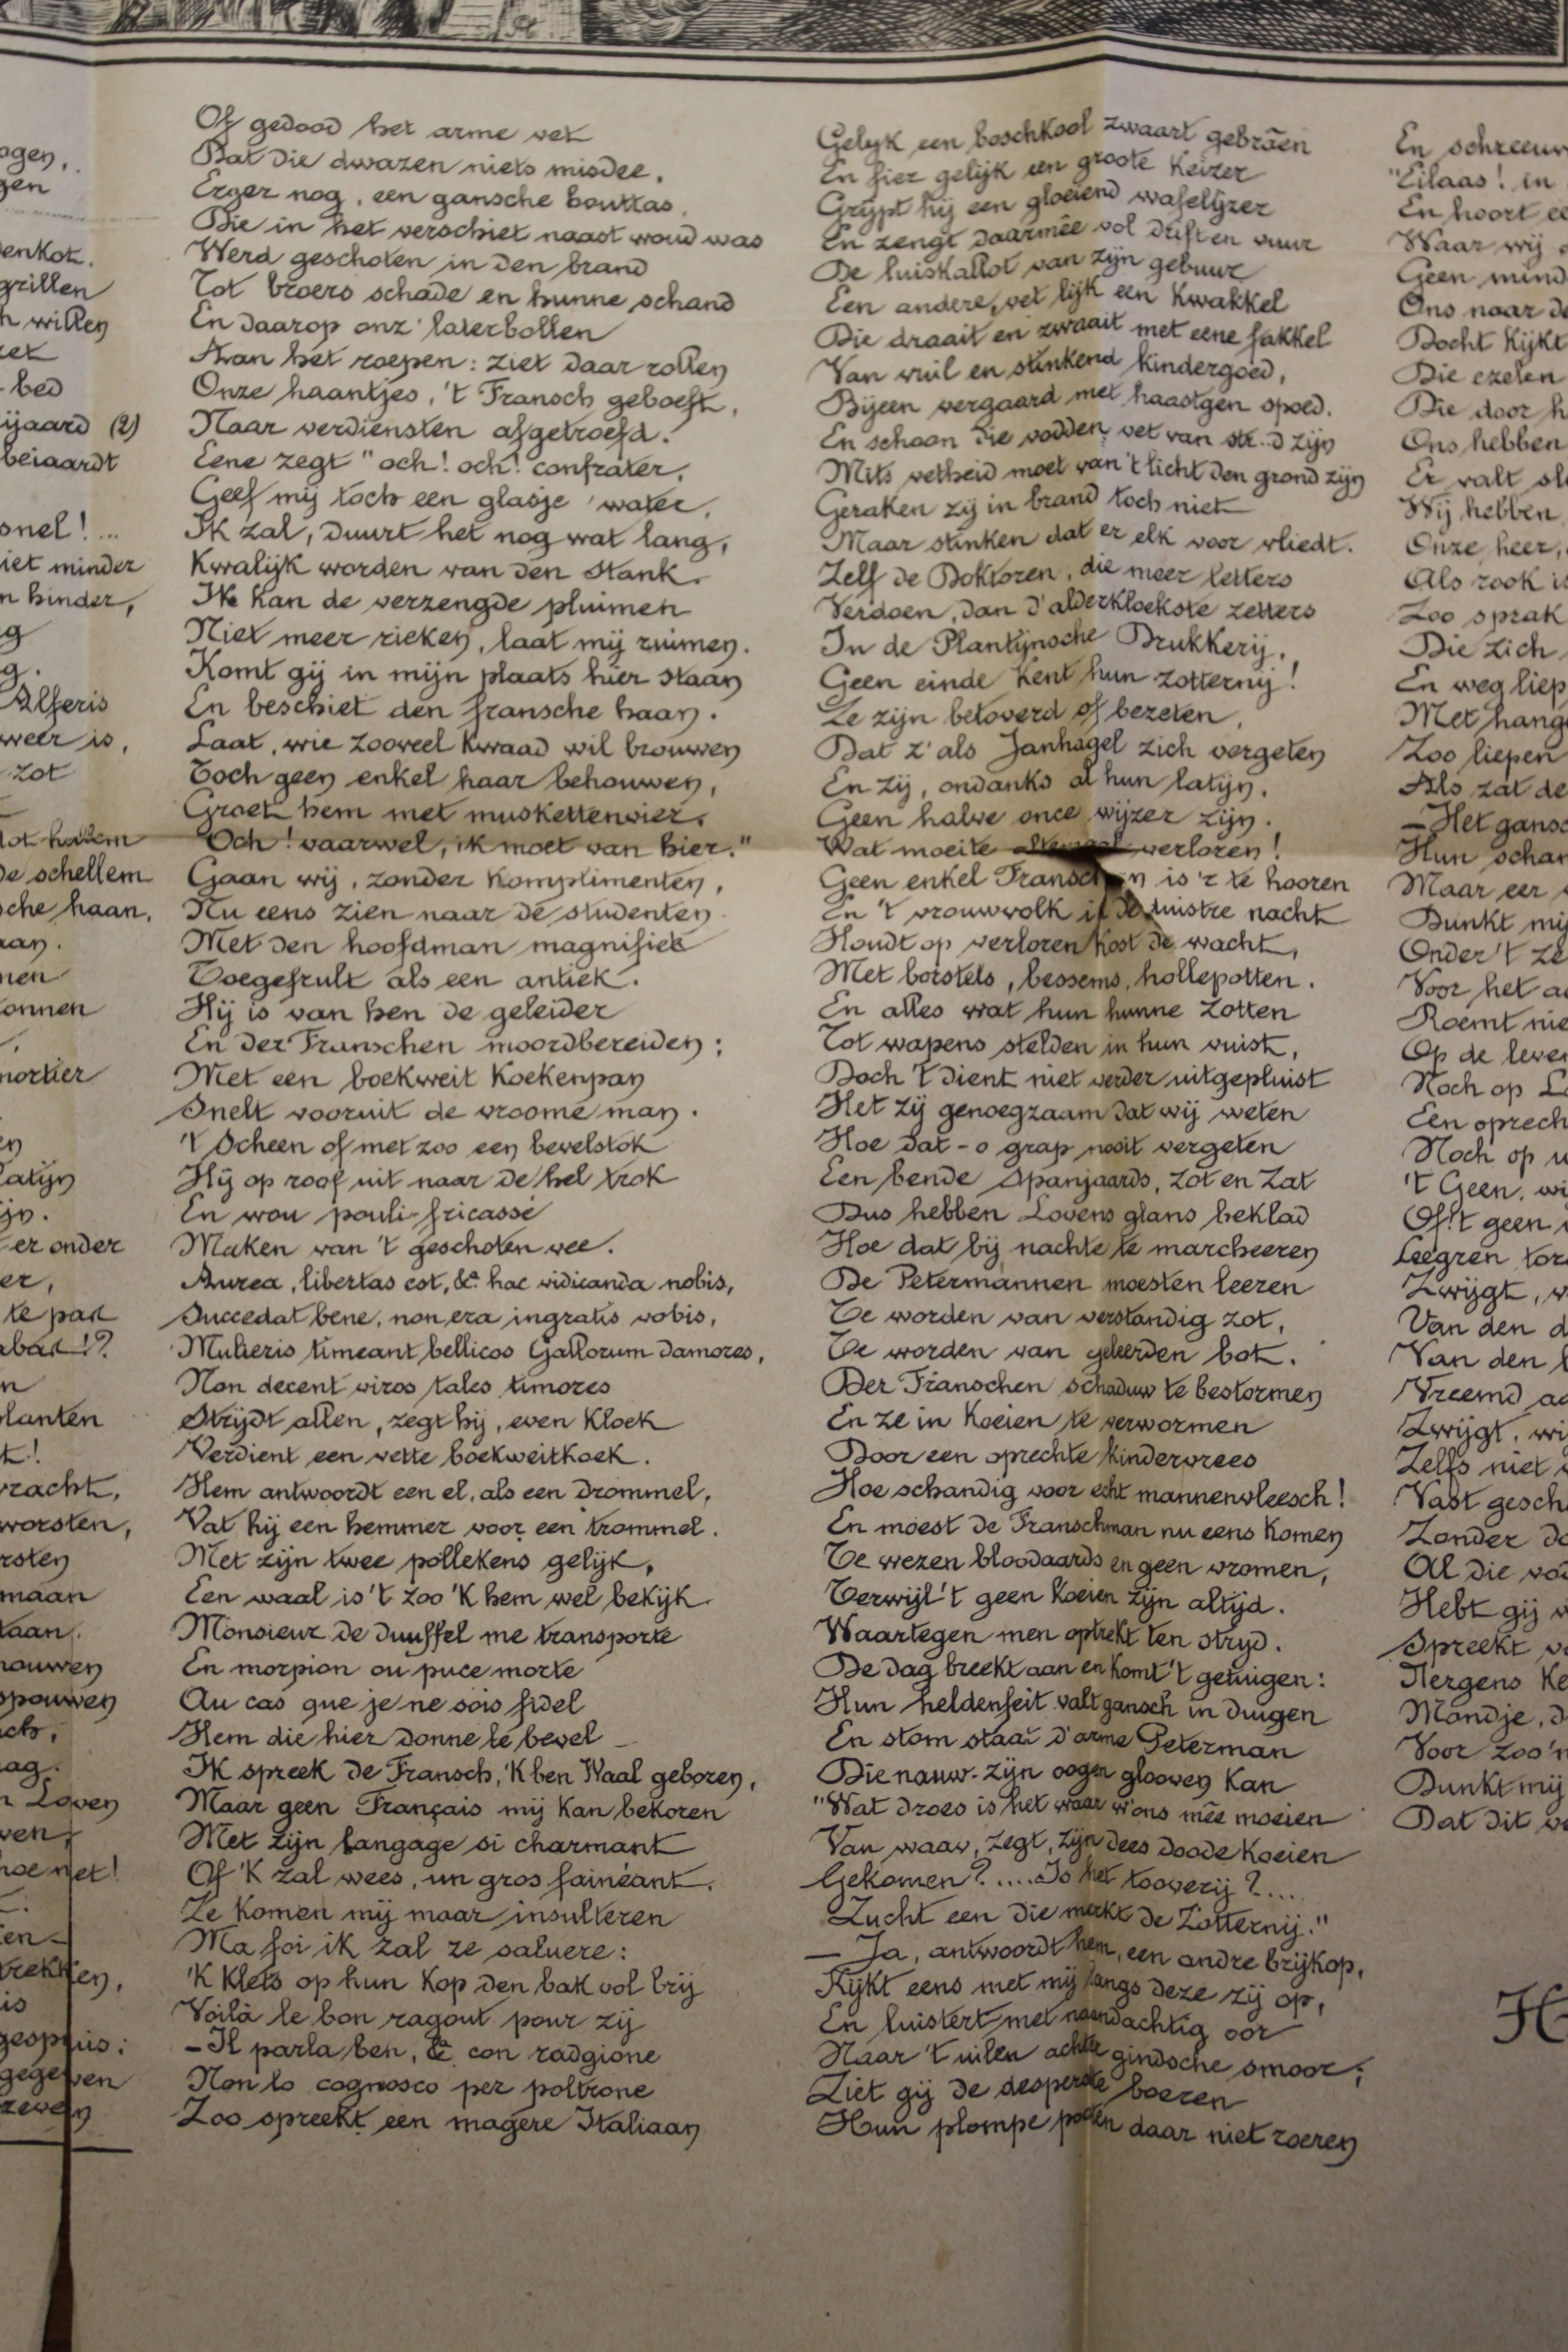 ogen,
gen
enkot.
grillen
n willen
ret
bed
ijaard (2)
beiaardt
snel!...
iet minder
n hinder,
g
g.
Alferis
weer is,
zot
tot hallem
de schellem
sche haan,
aan.
nen
onnen
mortier
en
Latijn
ijn.
er onder
er,
te part
abat!?
n
planten
t!
vracht,
worsten,
rsten
maan
taan.
houwen
spouwen
ach,
aag.
n Loven
ven,
hoe net!
en
trekken,
is
gespuis:
gegeven
zeven
Of gedood het arme vet
Dat die dwazen niets misdee.
Erger nog, een gansche bouttas
Die in het verschiet naast woud was
Werd geschoten in den brand
Tot broers schade en hunne schand
En daarop onz' laterbollen
Aan het roepen: ziet daar rollen
Onze haantjes, 't Fransch geboeft,
Naar verdiensten afgetroefd.
Eene zegt "och! och! confrater,
Geef mij toch een glasje water,
Ik zal, duurt het nog wat lang,
Kwalijk worden van den stank.
Ik kan de verzengde pluimen
Niet meer rieken, laat mij ruimen.
Komt gij in mijn plaats hier staan
En beschiet den fransche haan.
Laat, wie zooveel kwaad wil brouwen
Toch geen enkel haar behouwen,
Groet hem met muskettenvier.
Och! vaarwel, ik moet van hier."
Gaan wij, zonder komplimenten,
Nu eens zien naar de studenten
Met den hoofdman magnifiek
Toegefrult als een antiek.
Hij is van hen de geleider
En der Franschen moordbereider;
Met een boekweit koekenpan
Snelt vooruit de vroome man.
't Scheen of met zoo een bevelstok
Hij op roof uit naar de hel trok
En wou pouli-fricassé
Maken van 't geschoten vee.
Aurea, libertas est, &c hac vidicanda nobis,
Succedat bene, non era ingratis vobis,
Mulieris timeant bellicos Gallorum damores,
Non decent viros tales timores
Strijdt allen, zegt hij, even kloek
Verdient een vette boekweitkoek.
Hem antwoordt een el, als een drommel,
Vat hij een hemmer voor een trommel.
Met zijn twee pollekens gelijk,
Een waal is 't zoo 'k hem wel bekijk.
Monsieur de duuffel me transporte
En morpion ou puce morte
Au cas que je ne sois fidel
Hem die hier donne le bevel
Ik spreek de Fransch, 'k ben Waal geboren,
Maar geen Français mij kan bekoren
Met zijn langage si charmant
Of 'k zal wees, un gros fainéant.
Ze komen mij maar insulteren
Ma foi ik zal ze saluere:
'k Klets op hun kop den bak vol brij
Voilà le bon ragout pour zij
- Il parla ben, &c con radgione
Non lo cognosco per poltrone
Zoo spreekt een magere Italiaan
Gelyk een boschkool zwaart gebrãen
En fier gelijk een groote Keizer
Grijpt hij een gloeiend wafelijzer
En zengt daarmêe vol drift en vuur
De luiskallot van zijn gebuur
Een andere, vet lijk een kwakkel
Die draait en zwaait met eene fakkel
Van vuil en stinkend kindergoed,
Bijeen vergaard met haastgen spoed.
En schoon die vodden vet van str..d zijn
Mits vetheid moet van 't licht den grond zijn
Geraken zij in brand toch niet
Maar stinken dat er elk voor vliedt.
Zelf de Doktoren, die meer letters
Verdoen, dan d'alderkloekste zetters
In de Plantijnsche Drukkerij,
Geen einde kent hun zotternij!
Ze zijn betoverd of bezeten,
Dat z' als Janhagel zich vergeten
En zij, ondanks al hun latijn,
Geen halve once wijzer zijn.
Wat moeite altemaal verloren!
Geen enkel Franschman is 'r te hooren
En 't vrouwvolk in de duistre nacht
Houdt op verloren kost de wacht,
Met borstels, bessems, hollepotten.
En alles wat hun hunne zotten
Tot wapens stelden in hun vuist,
Doch 't dient niet verder uitgepluist
Het zij genoegzaam dat wij weten
Hoe dat - o grap nooit vergeten
Een bende Spanjaards, zot en zat
Dus hebben Lovens glans beklad
Hoe dat bij nachte te marcheeren
De Petermannen moesten leeren
Te worden van verstandig zot,
Te worden van geleerden bot.
Der Franschen schaduw te bestormen
En ze in koeien te verwormen
Door een oprechte kindervrees
Hoe schandig voor echt mannenvleesch!
En moest de Franschman nu eens komen
Te wezen bloodaards en geen vromen,
Terwijl 't geen koeien zijn altijd.
Waartegen men optrekt ten strijd.
De dag breekt aan en komt 't getuigen:
Hun heldenfeit valt gansch in duigen
En stom staat d'arme Peterman
Die nauw zijn oogen glooven kan
"Wat droes is het waar w'ons mêe moeien
Van waar, zegt, zijn dees doode koeien
Gekomen?....Is het tooverij?....
Zucht een die merkt de Zotternij."
— Ja, antwoordt hem, een andre brijkop,
Kijkt eens met mij langs deze zij op,
En luistert met naandachtig oor
Naar 't uilen achter gindsche smoor;
Ziet gij de desperate boeren
Hun plompe pooten daar niet roeren
En schreeuw
"Eilaas! in
En hoort ee
Waar wij
Geen mind
Ons naar de
Docht kijkt
Die ezelen
Die door h
Ons hebben
Er valt
Wij hebben
Onze heer,
Als rook is
Zoo sprak
Die zich
En weg liep
Met hang
Zoo liepen
Als zat de
— Het gansc
Hun schan
Maar eer
Dunkt mij
Onder 't ze
Voor het a
Roemt nie
Op de leve
Noch op L
Een oprech
Noch op u
't Geen, wi
Of 't geen
Leegren tor
Zwijgt, v
Van den d
Van den
Vreemd a
Zwijgt, wi
Zelfs niet
Vast gesch
Zonder d
Al die vo
Hebt gij
Spreekt v
Nergens ke
Mandje, d
Voor zoo'n
Dunkt mij
Dat dit we
H